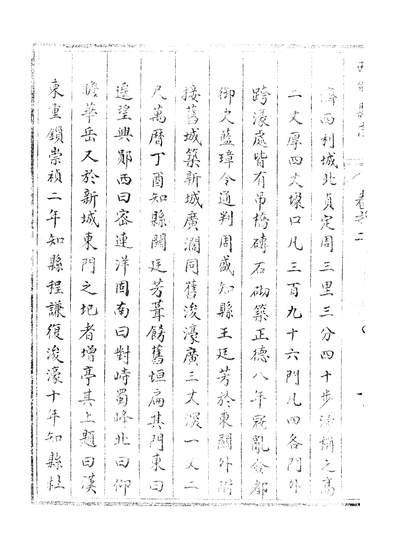 卷之二
西利城北貞定周三里三分四十步 高
二丈厚四丈堞口凡三百九十六門凡四各門外
跨濠處皆有吊橋磚石砌築正德八年寇亂僉都
御史藍璋令通判周盛知縣王廷芳於東關外附
接舊城築新城廣濶同舊浚濠廣三丈深一丈二
尺萬曆丁酉知縣關廷芳葺餙舊垣扁其門東曰
遥望興鄖西曰密連洋固南曰對峙蜀峰北曰仰
瞻華岳又於新城東門之圯者增亭其上題曰漢
東重鎖崇禎二年知縣程謙復浚濠十年知縣杜